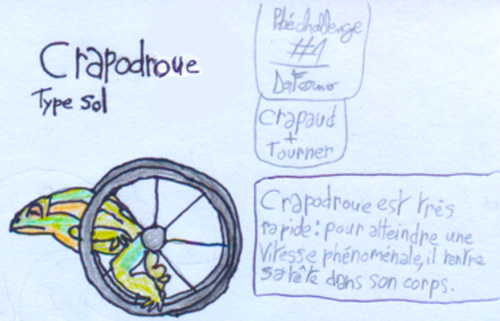 Crapodroue
Type sol
#1
Crapaud
+
Tourner
Crapodroue est très
rapide : pour atteindre une
vitesse phénoménale, il rentre
sa tête dans son corps.